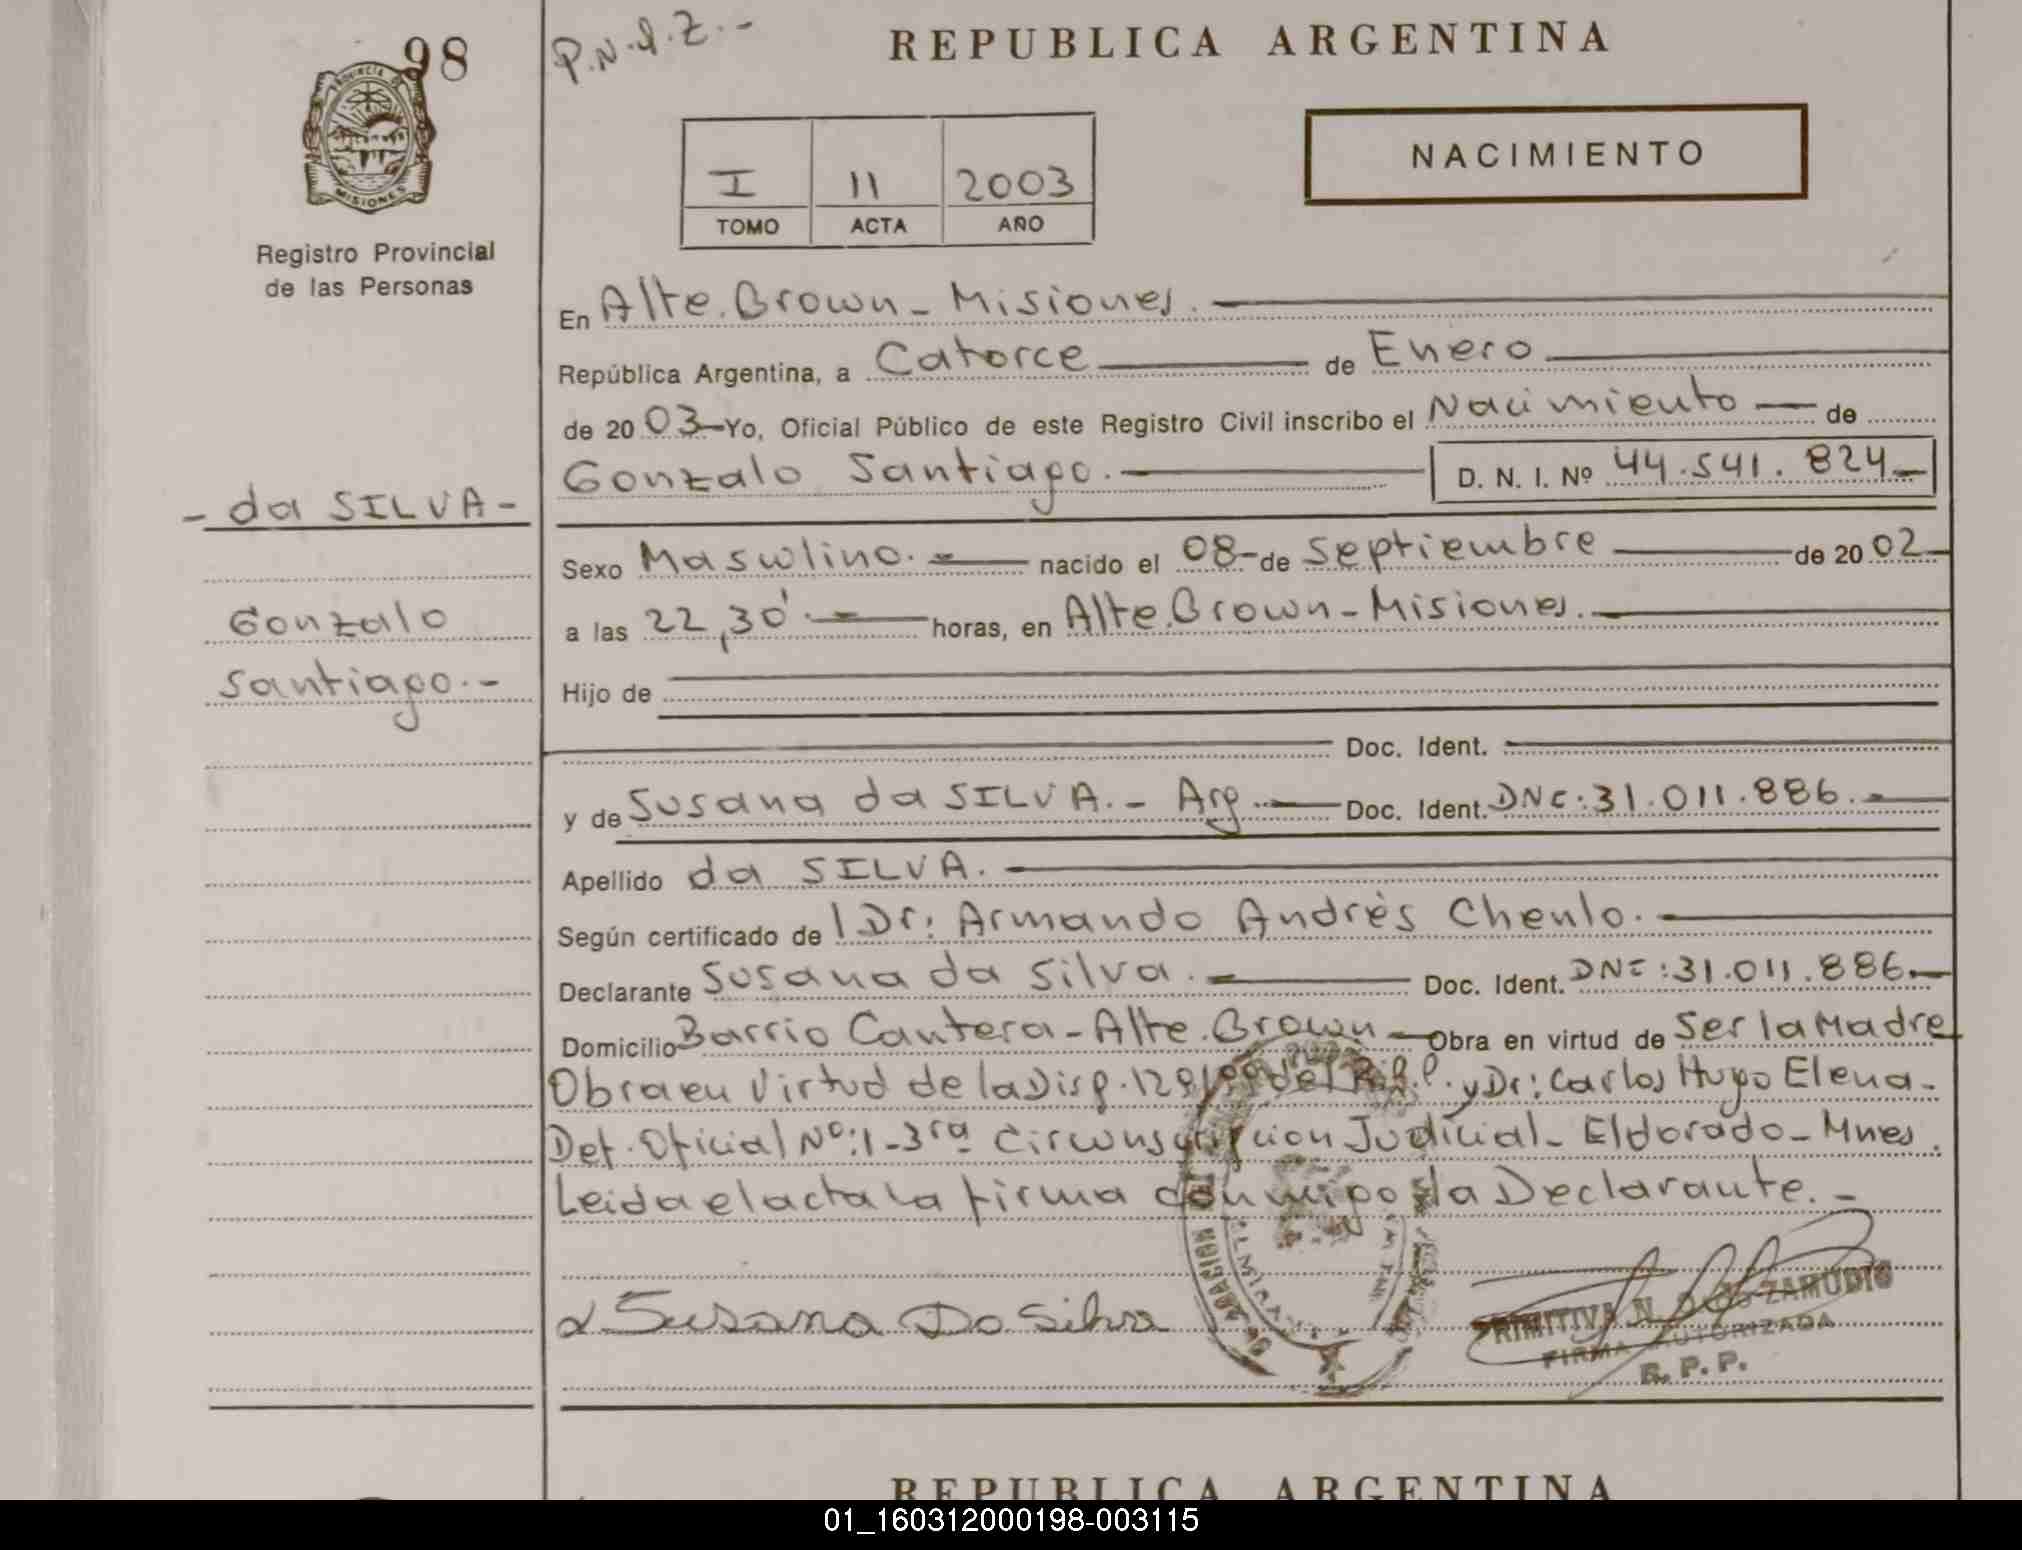 98
P.N.I.Z.-
REPUBLICA ARGENTINA
PROVINCIA DE
MISIONES
Registro Provincial
de las Personas
I 11 2003
TOMO ACTA AÑO
NACIMIENTO
En Alte. Brown - Misiones.
República Argentina, a Catorce de Enero
de 2003 Yo, Oficial Público de este Registro Civil inscribo el Nacimiento de
Gonzalo Santiago. D. N. I. Nº 44.541.824
- da SILVA -
Sexo Masculino. nacido el 08 de Septiembre de 2002
Gonzalo
a las 22,30' horas, en Alte. Brown - Misiones.
Santiago.-
Hijo de
Doc. Ident.
y de Susana da SILVA. - Arg. Doc. Ident. DNI: 31.011.886.
Apellido da SILVA.
Según certificado de Dr: Armando Andrés Chenlo.
Declarante Susana da Silva. Doc. Ident. DNI: 31.011.886.
Domicilio Barrio Cantera - Alte. Brown Obra en virtud de Ser la Madre
Obra en Virtud de la Disp. del y Dr: Carlos Hugo Elena -
Def. Oficial Nº: 1 - 3ra Circunscripcion Judicial - Eldorado - Mnes.
Leida el acta la firma conmigo la Declarante. -
Susana Da Silva
PRIMITIVA N. ZAMUDIO
FIRMA AUTORIZADA
R. P. P.
REPUBLICA ARGENTINA
01_160312000198-003115